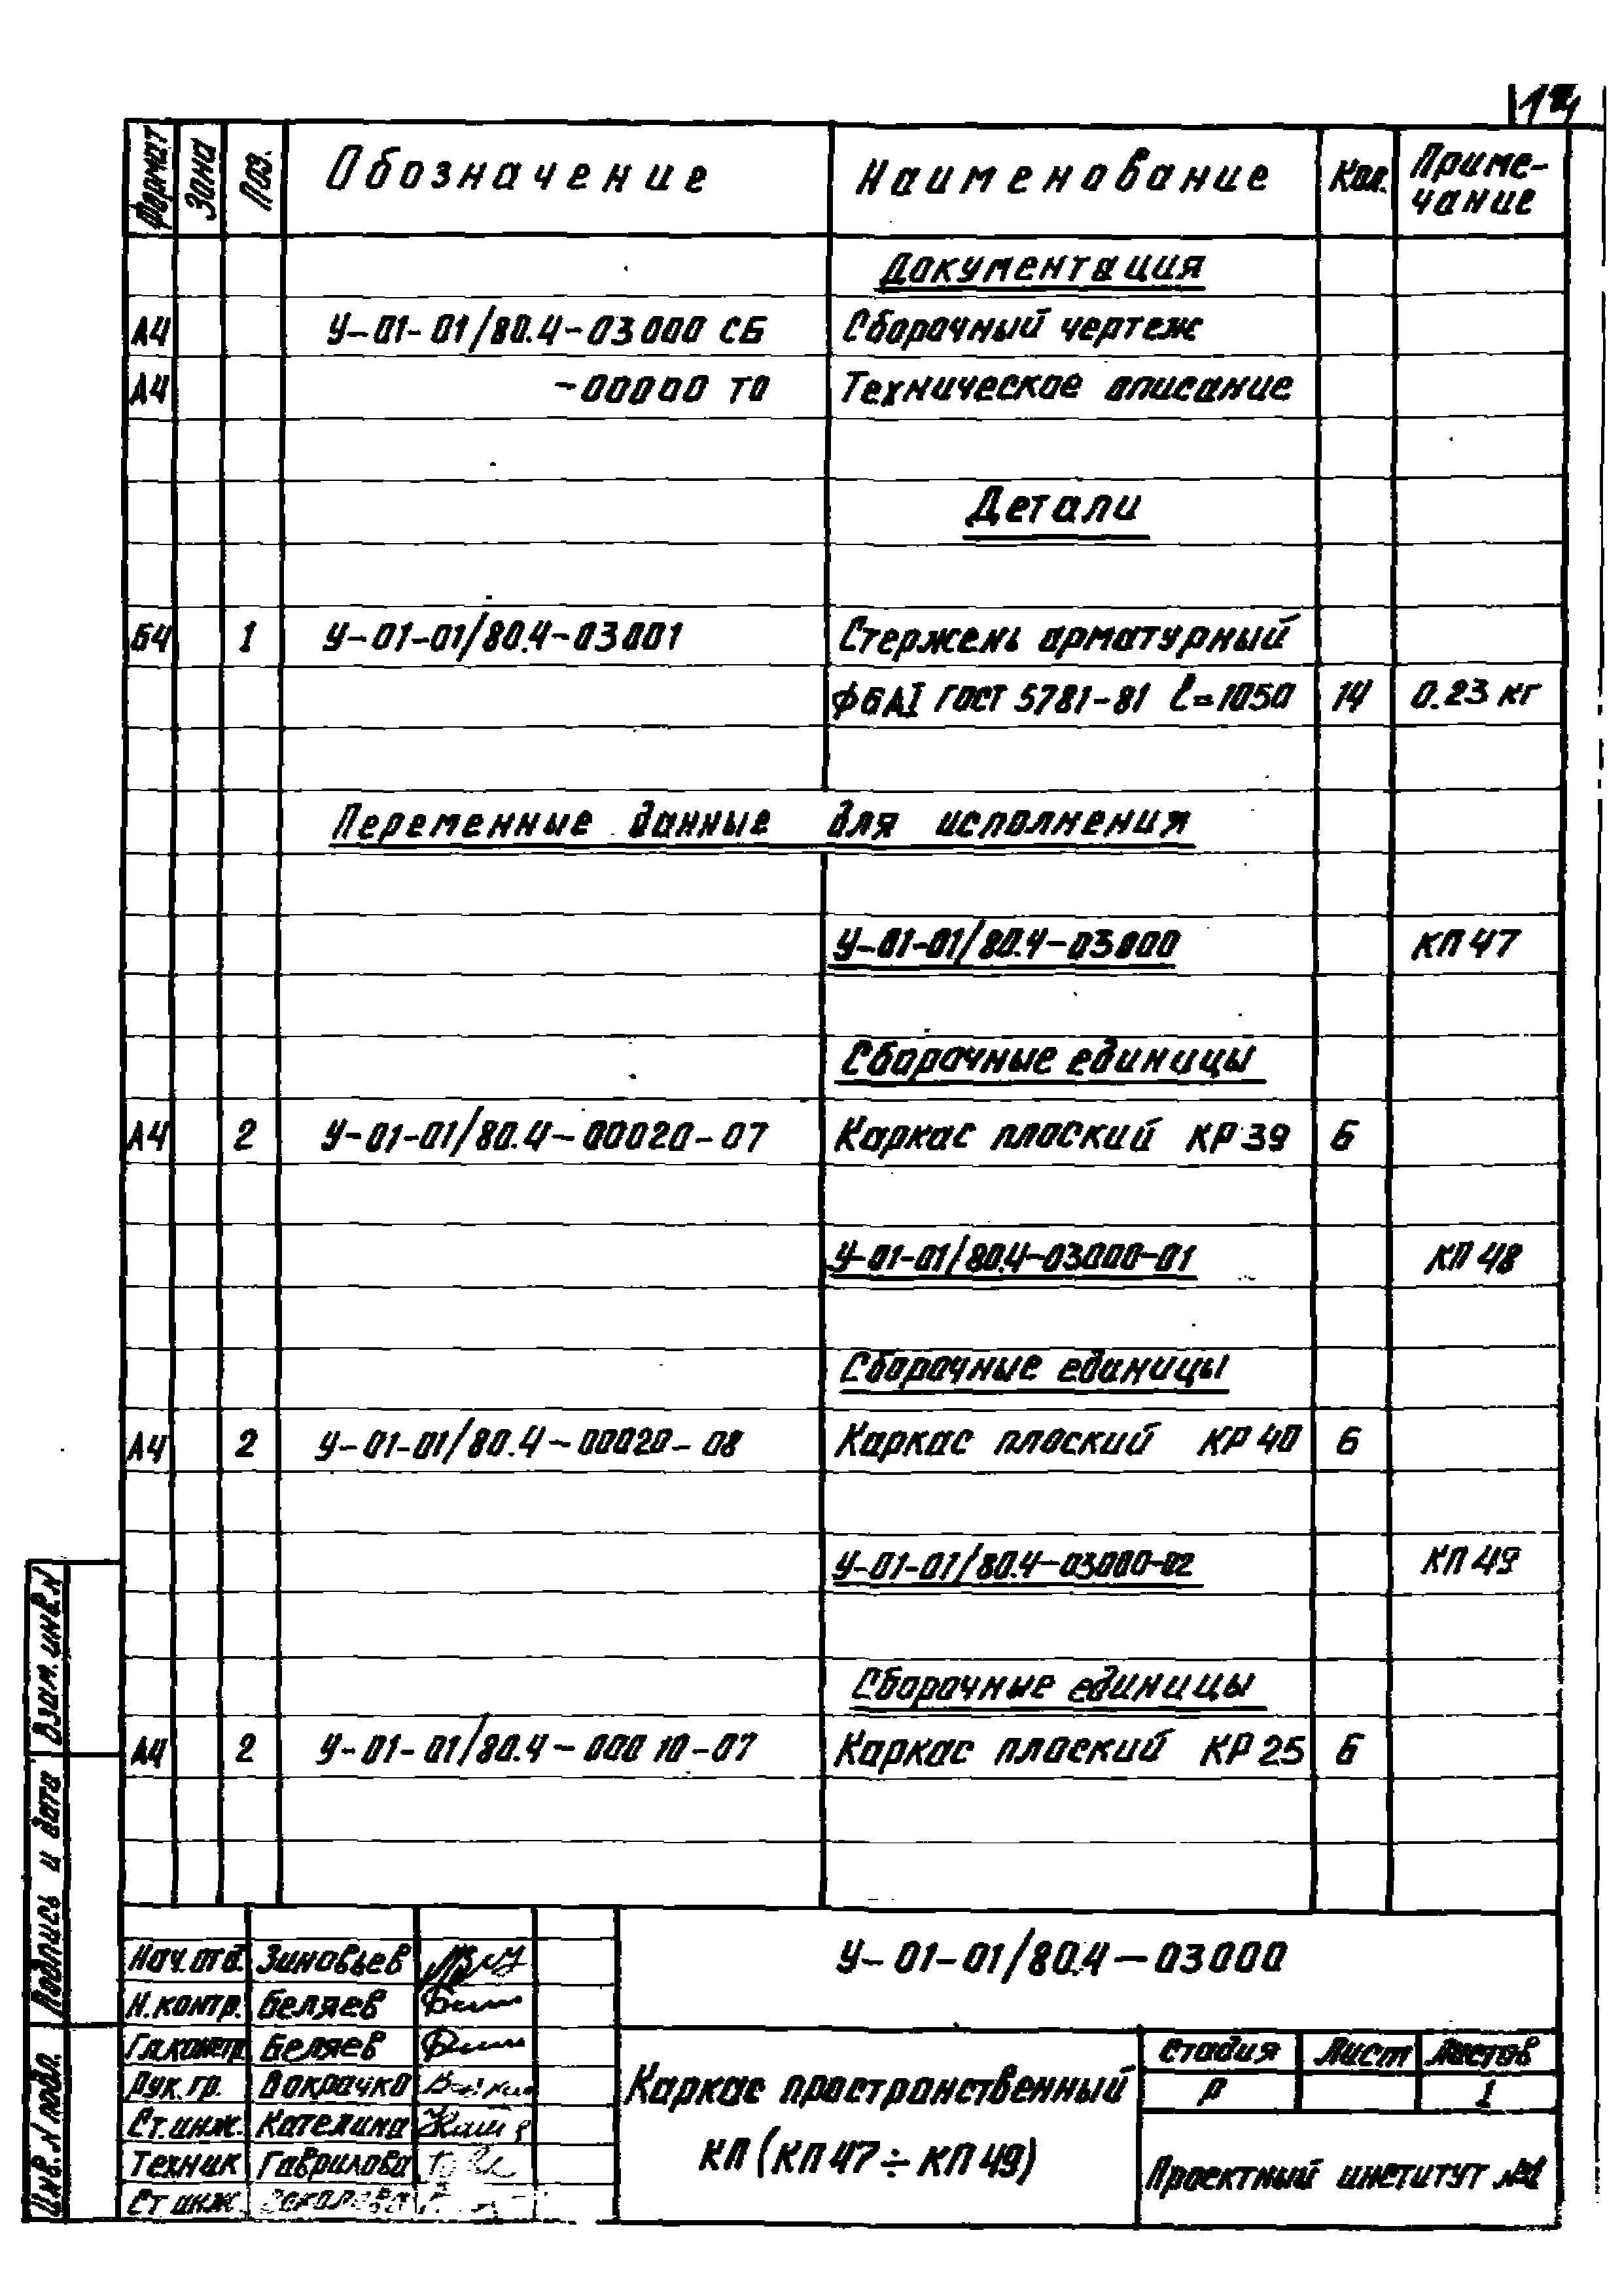 Формат Зона Поз. Обозначение Наименование Кол. Приме-
чание
Документация
А4 У-01-01/80.4-03000 СБ Сборочный чертеж
А4 -00000 ТО Техническое описание
Детали
БЧ 1 У-01-01/80.4-03001 Стержень арматурный
Ф6АI ГОСТ 5781-81 ℓ=1050 14 0.23 кг
Переменные данные для исполнения
У-01-01/80.4-03000 КП 47
Сборочные единицы
А4 2 У-01-01/80.4-00020-07 Каркас плоский КР 39 6
У-01-01/80.4-03000-01 КП 48
Сборочные единицы
А4 2 У-01-01/80.4-00020-08 Каркас плоский КР 40 6
У-01-01/80.4-03000-02 КП 49
Сборочные единицы
А4 2 У-01-01/80.4-00010-07 Каркас плоский КР 25 6
Взам. инв. N
Подпись и дата
Инв. N подл.
Нач. отд. Зиновьев
Н. контр. Беляев
Гл. констр. Беляев
Рук. гр. Вокрачко
Ст. инж. Кателина
Техник Гаврилова
Ст инж.
У-01-01/80.4-03000
Каркас пространственный
КП (КП 47÷КП 49)
Стадия Лист Листов
Р 1
Проектный институт №1